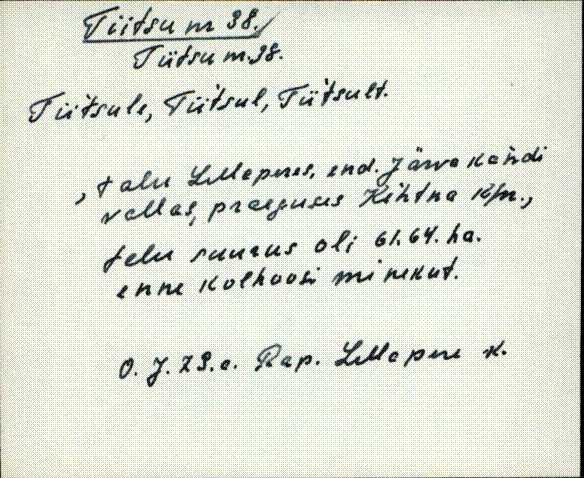 Tiitsu nr 38.
Tiitsu nr. 38.
Tiitsule, Tiitsul, Tiitsult.
, talu Lellapere, end. Järvakandi
vallas, praeguses Kehtna k/n.,
talu suurus oli 61.64. ha.
enne kolhoosi minekut.
O. J. 79.a. Rap. Lellapere k.